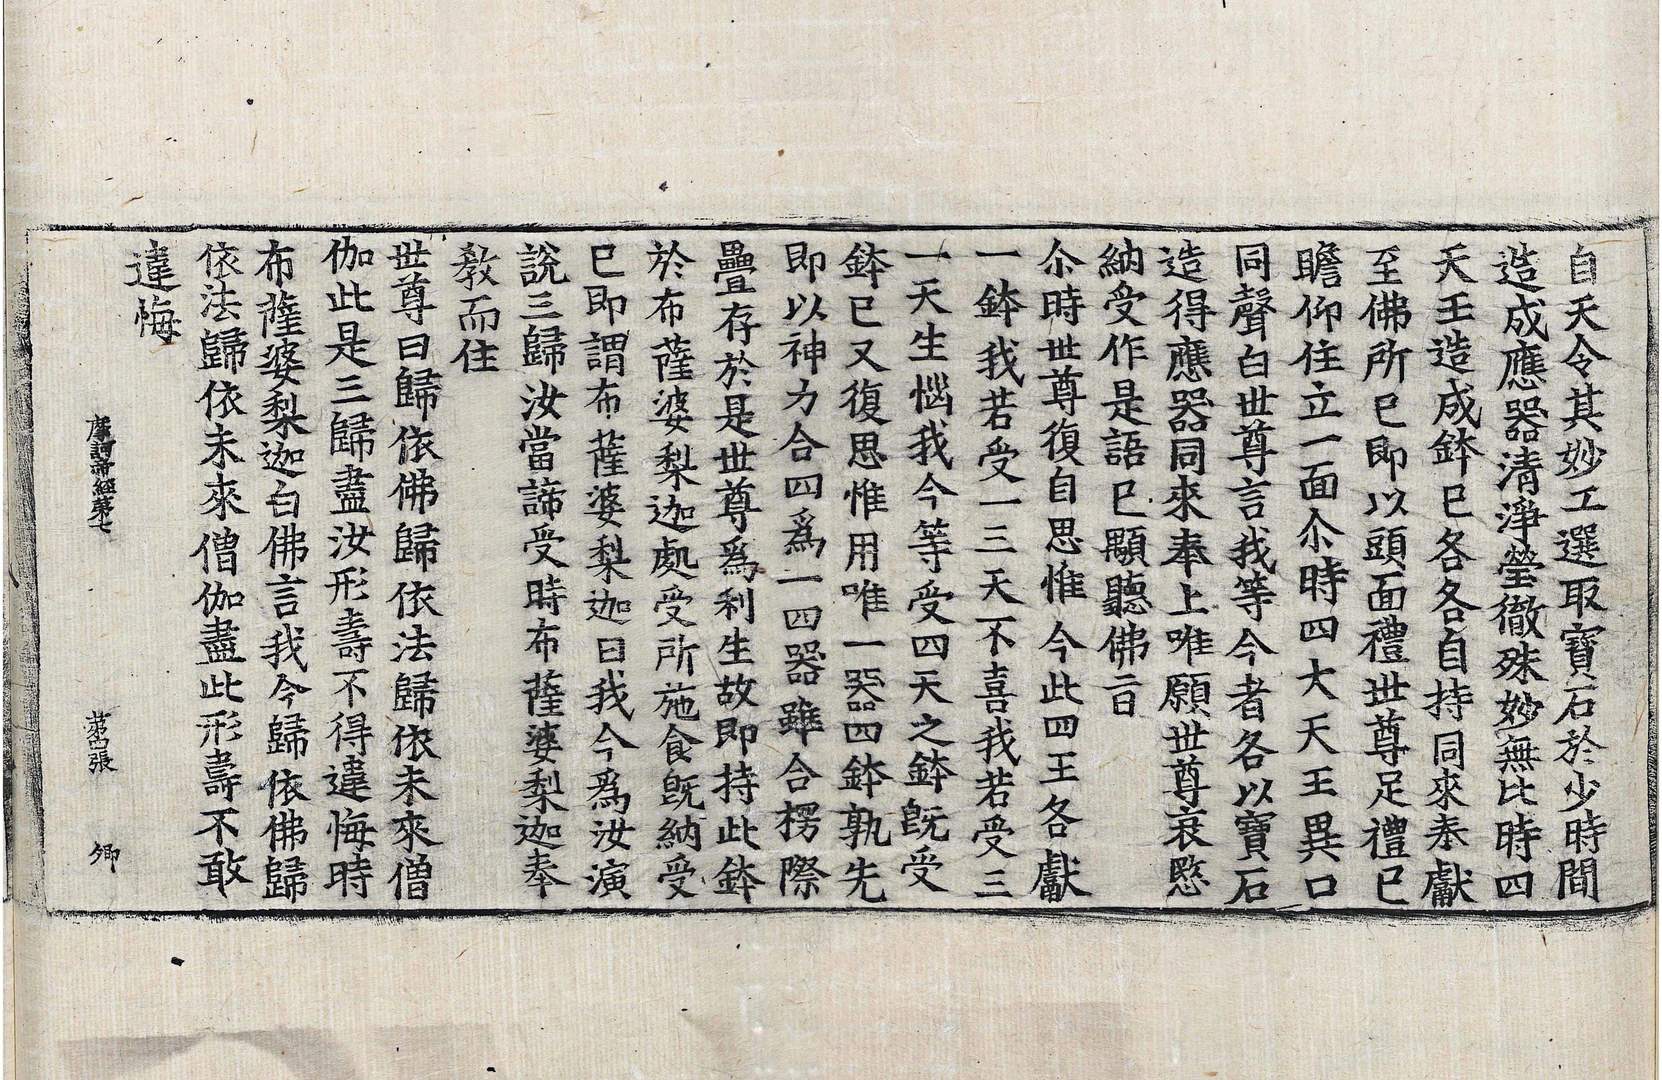 自天令其妙工選取寶石於少時間
造成應器清淨瑩徹殊妙無比時四
天王造成鉢已各各自持同來奉獻
至佛所已即以頭面禮世尊足禮已
瞻仰住立一面尒時四大天王異口
同聲白世尊言我等今者各以寶石
造得應器同來奉上唯願世尊哀愍
納受作是語已顒聽佛言
尒時世尊復自思惟今此四王各獻
一鉢我若受一三天不喜我若受三
一天生惱我今等受四天之鉢旣受
鉢已又復思惟用唯一器四鉢孰先
即以神力合四爲一四器雖合楞際
疊存於是世尊爲利生故即持此鉢
於布薩婆梨迦處受所施食旣納受
已即謂布薩婆梨迦曰我今爲汝演
說三歸汝當諦受時布薩婆梨迦奉
敎而住
世尊曰歸依佛歸依法歸依未來僧
伽此是三歸盡汝形壽不得違悔時
布薩婆梨迦白佛言我今歸依佛歸
依法歸依未來僧伽盡此形壽不敢
違悔
摩訶帝經第七 第四張 卿